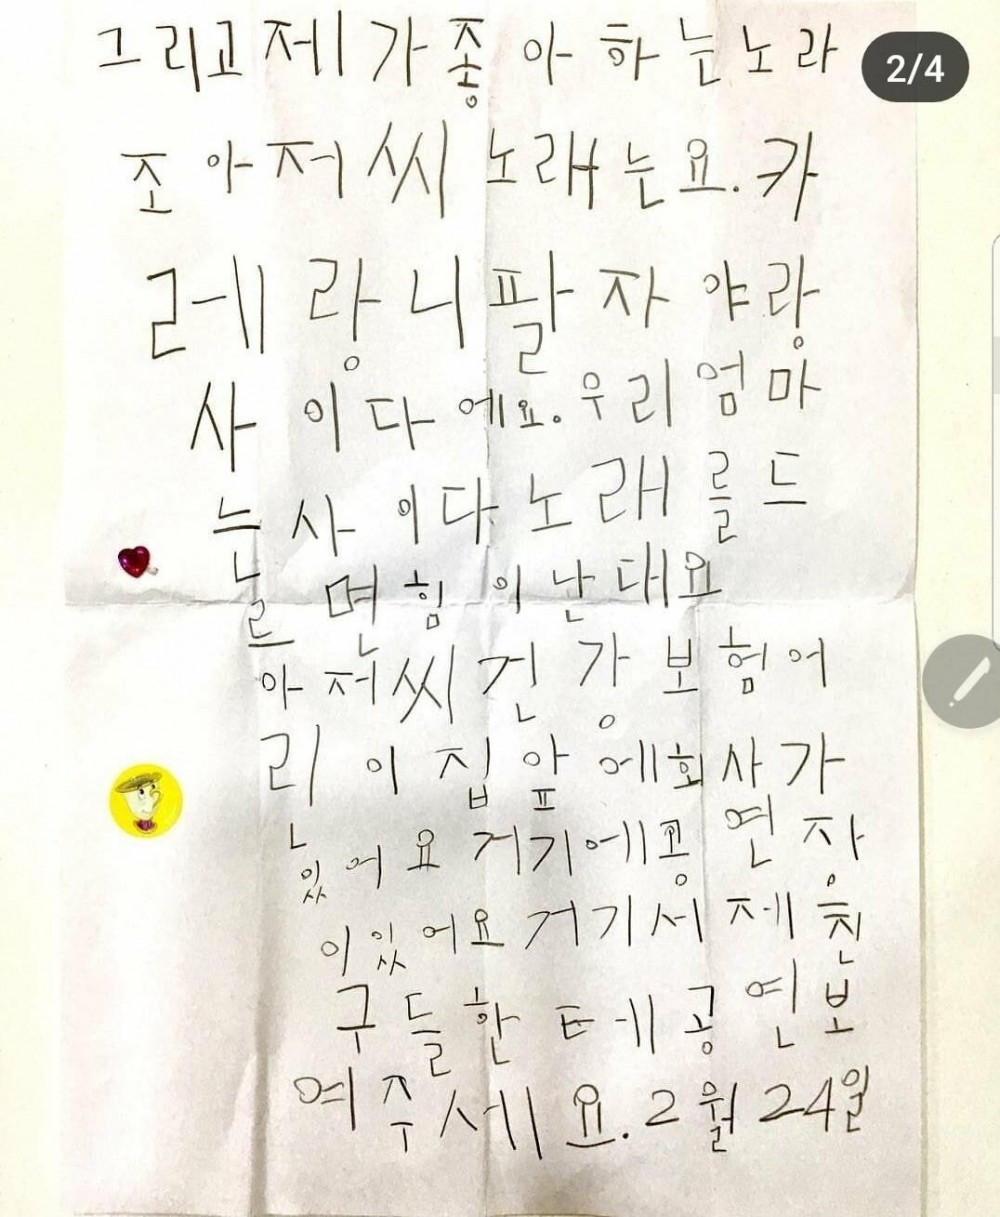 2/4
그리고 제가 좋아하는 노라
조 아저씨 노래는요. 카
레랑 니팔자야랑
사이다에요. 우리 엄마
는 사이다 노래를 드
르면 힘이 난대요
아저씨 건강보험어
리이집 앞에 회사가
ㄴ
있어요 거기에 공연장
이 있어요 거기서 제 친
구들한테 공연 보
여주세요. 2월 24일